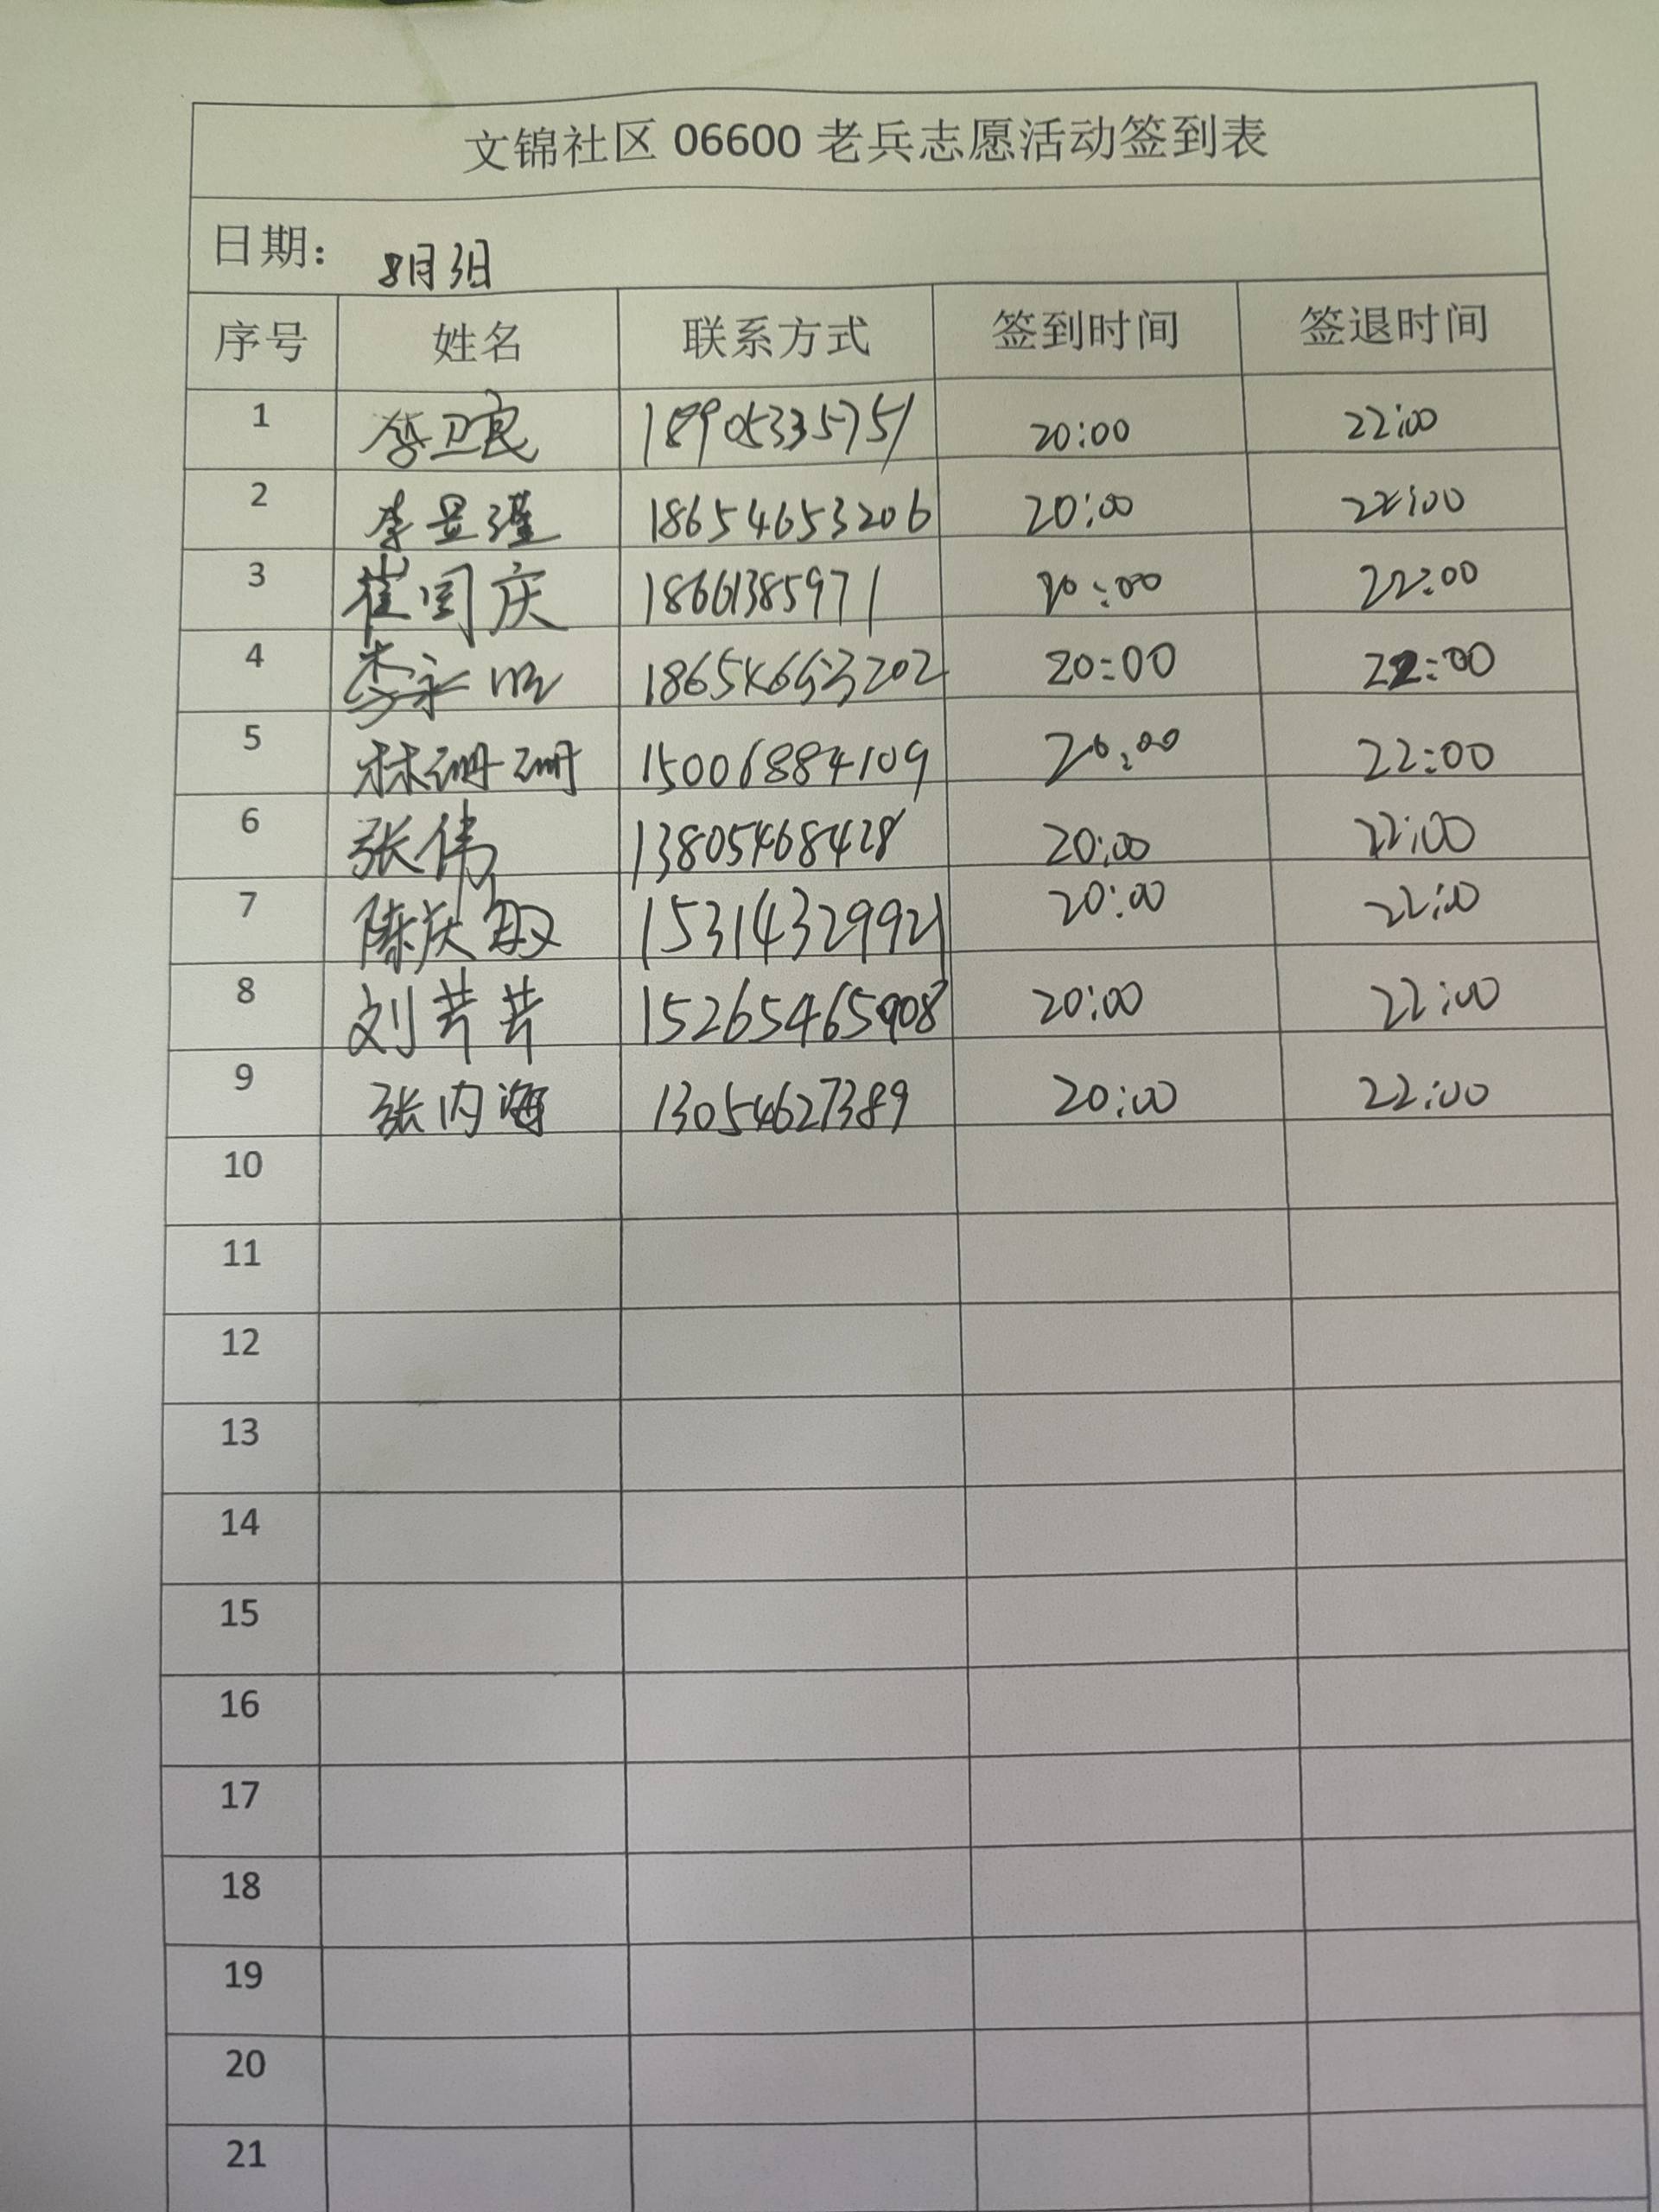 文锦社区 06600 老兵志愿活动签到表
日期： 8月3日
序号 姓名 联系方式 签到时间 签退时间
1 李卫良 18905335751 20:00 22:00
2 李昱瑾 18654653206 20:00 22:00
3 崔国庆 18661385971 20:00 22:00
4 李永明 18654653202 20:00 22:00
5 林珊珊 15006884109 20:00 22:00
6 张伟 13805468428 20:00 22:00
7 陈庆敏 15314329921 20:00 22:00
8 刘芹芹 15265465908 20:00 22:00
9 张内海 13054627389 20:00 22:00
10
11
12
13
14
15
16
17
18
19
20
21